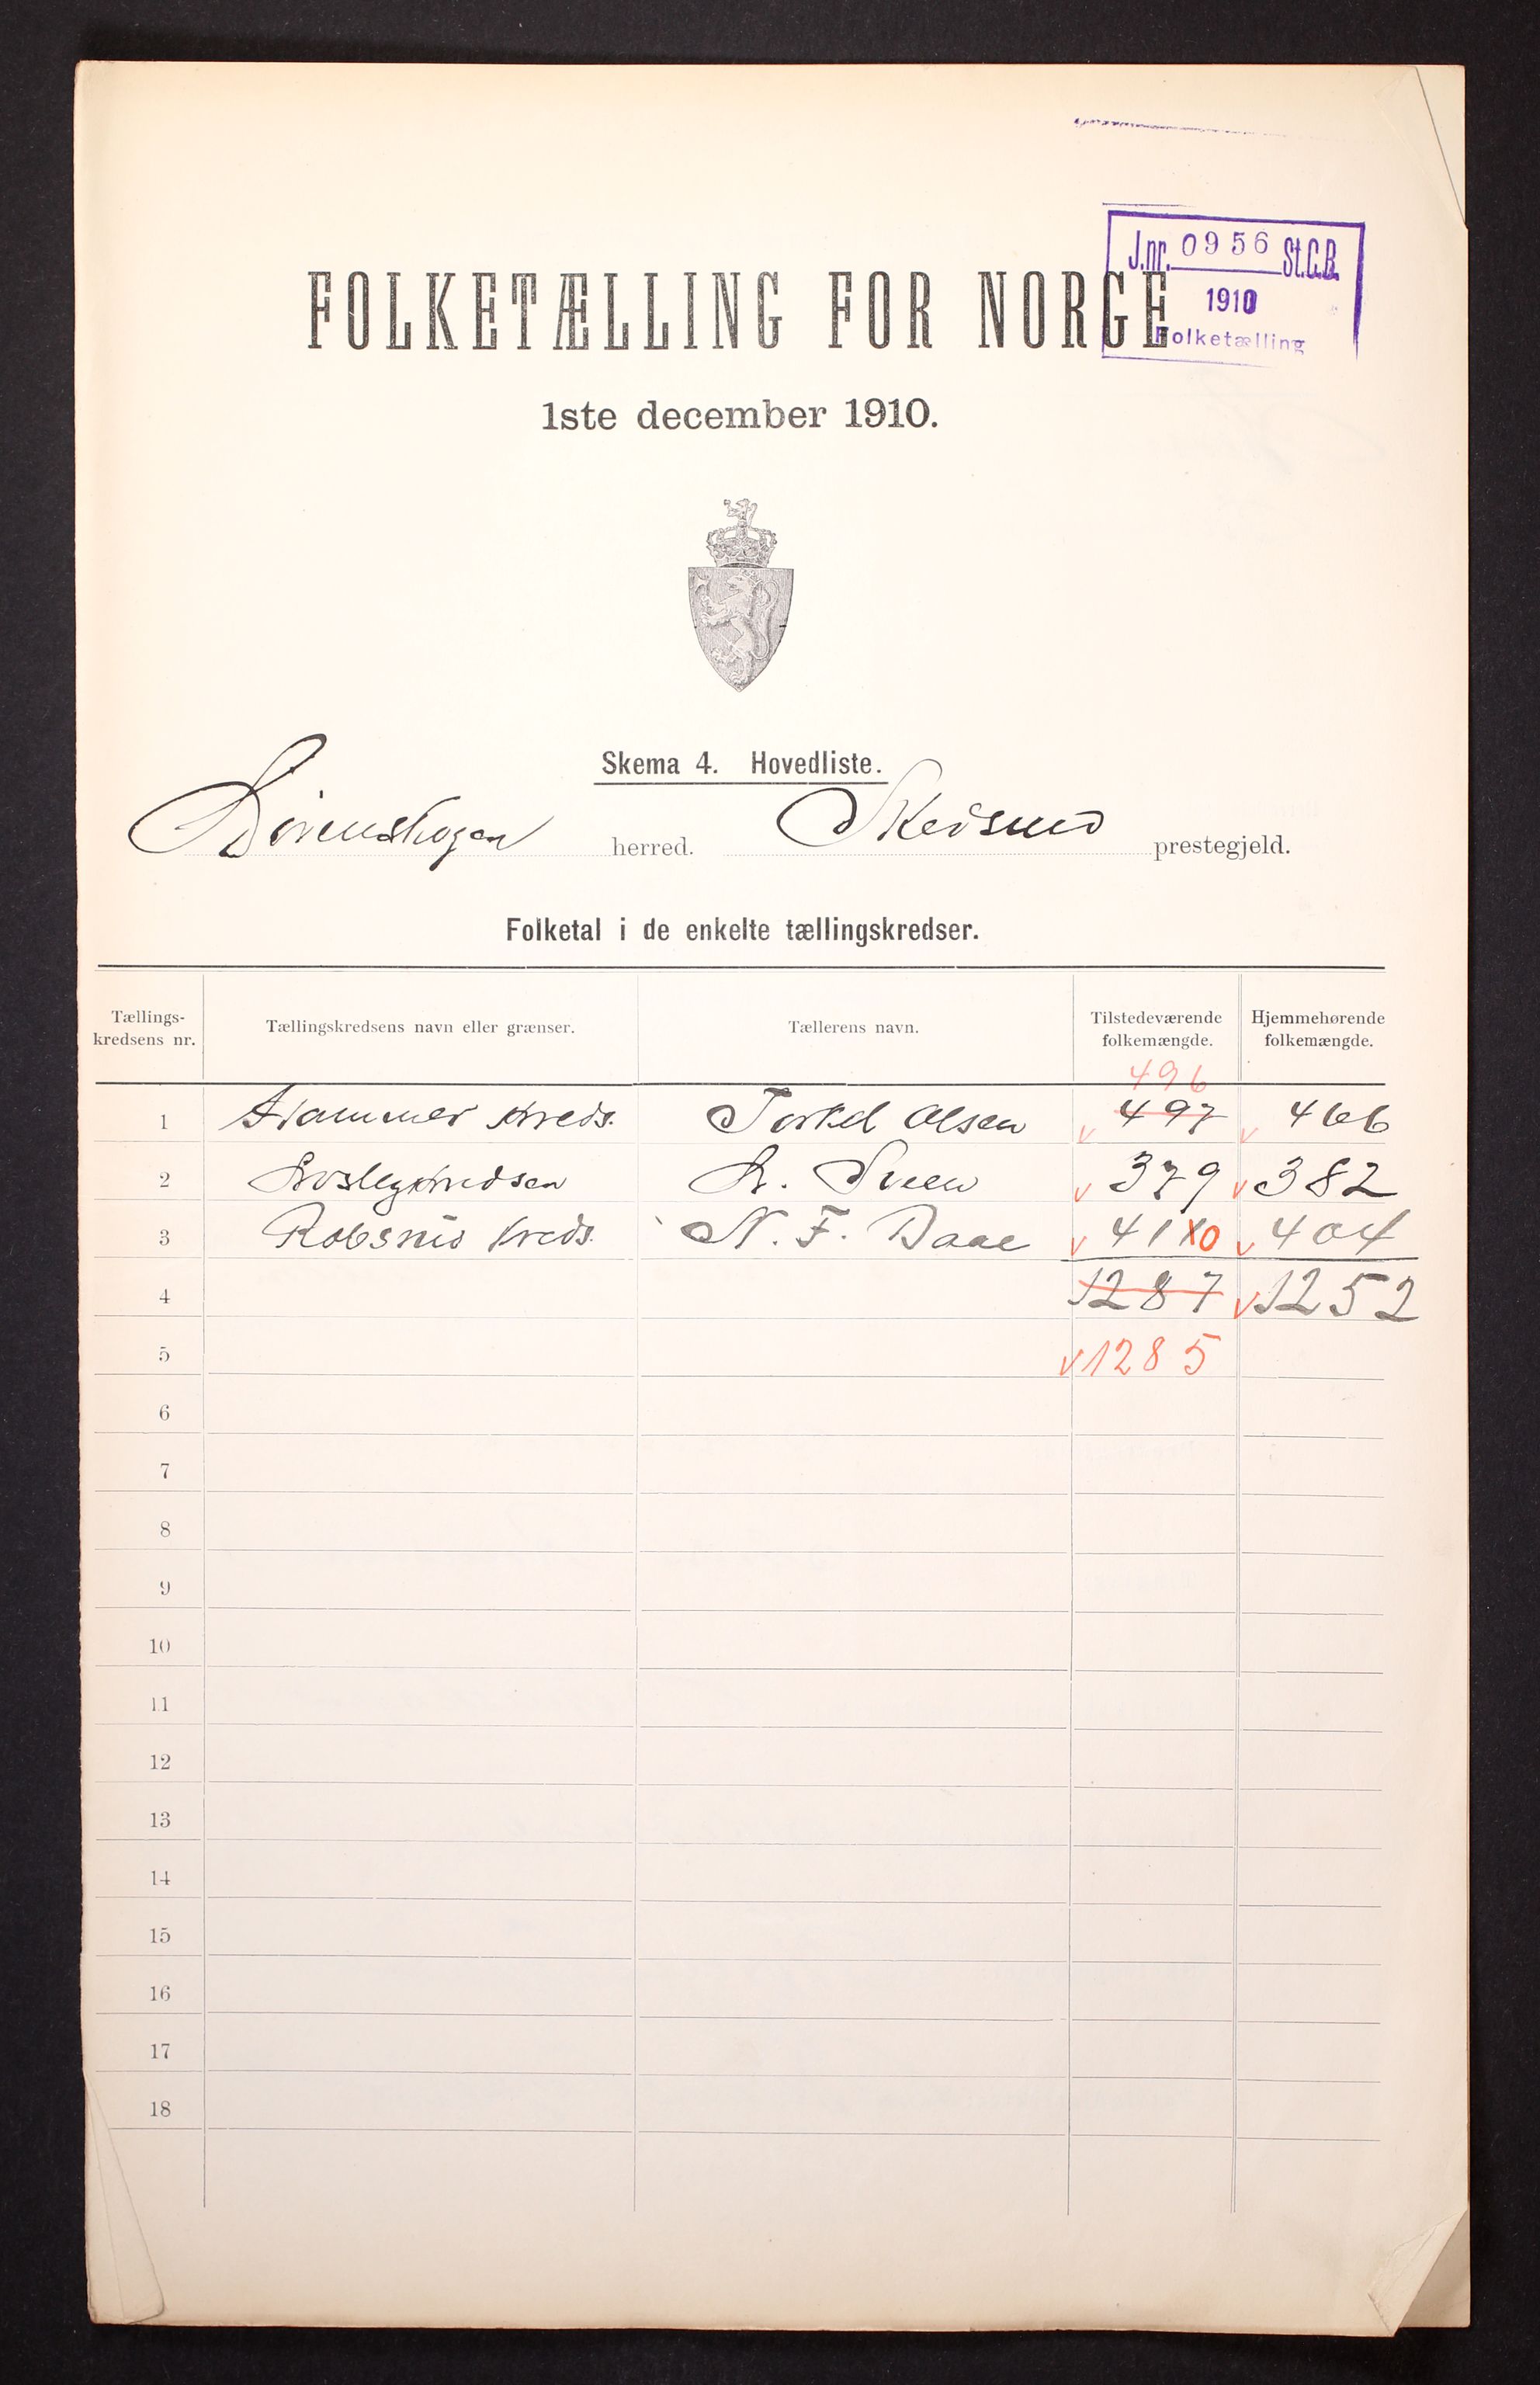 J.nr. 0956 St.C.B.
1910
Folketælling
FOLKETÆLLING FOR NORGE
1ste december 1910.
Skema 4. Hovedliste.
Lørenskogen herred. Skedsmo prestegjeld.
Folketal i de enkelte tællingskredser.
Tællings-kredsens nr. Tællingskredsens navn eller grænser. Tællerens navn. Tilstedeværende folkemængde. Hjemmehørende folkemængde.
496
1 Hammer kreds. Torkel Olsen 497 466
2 379 382
3 Robsrud kreds. N. F. Daae 4110 404
4 1287 1252
5 1285
6
7
8
9
10
11
12
13
14
15
16
17
18